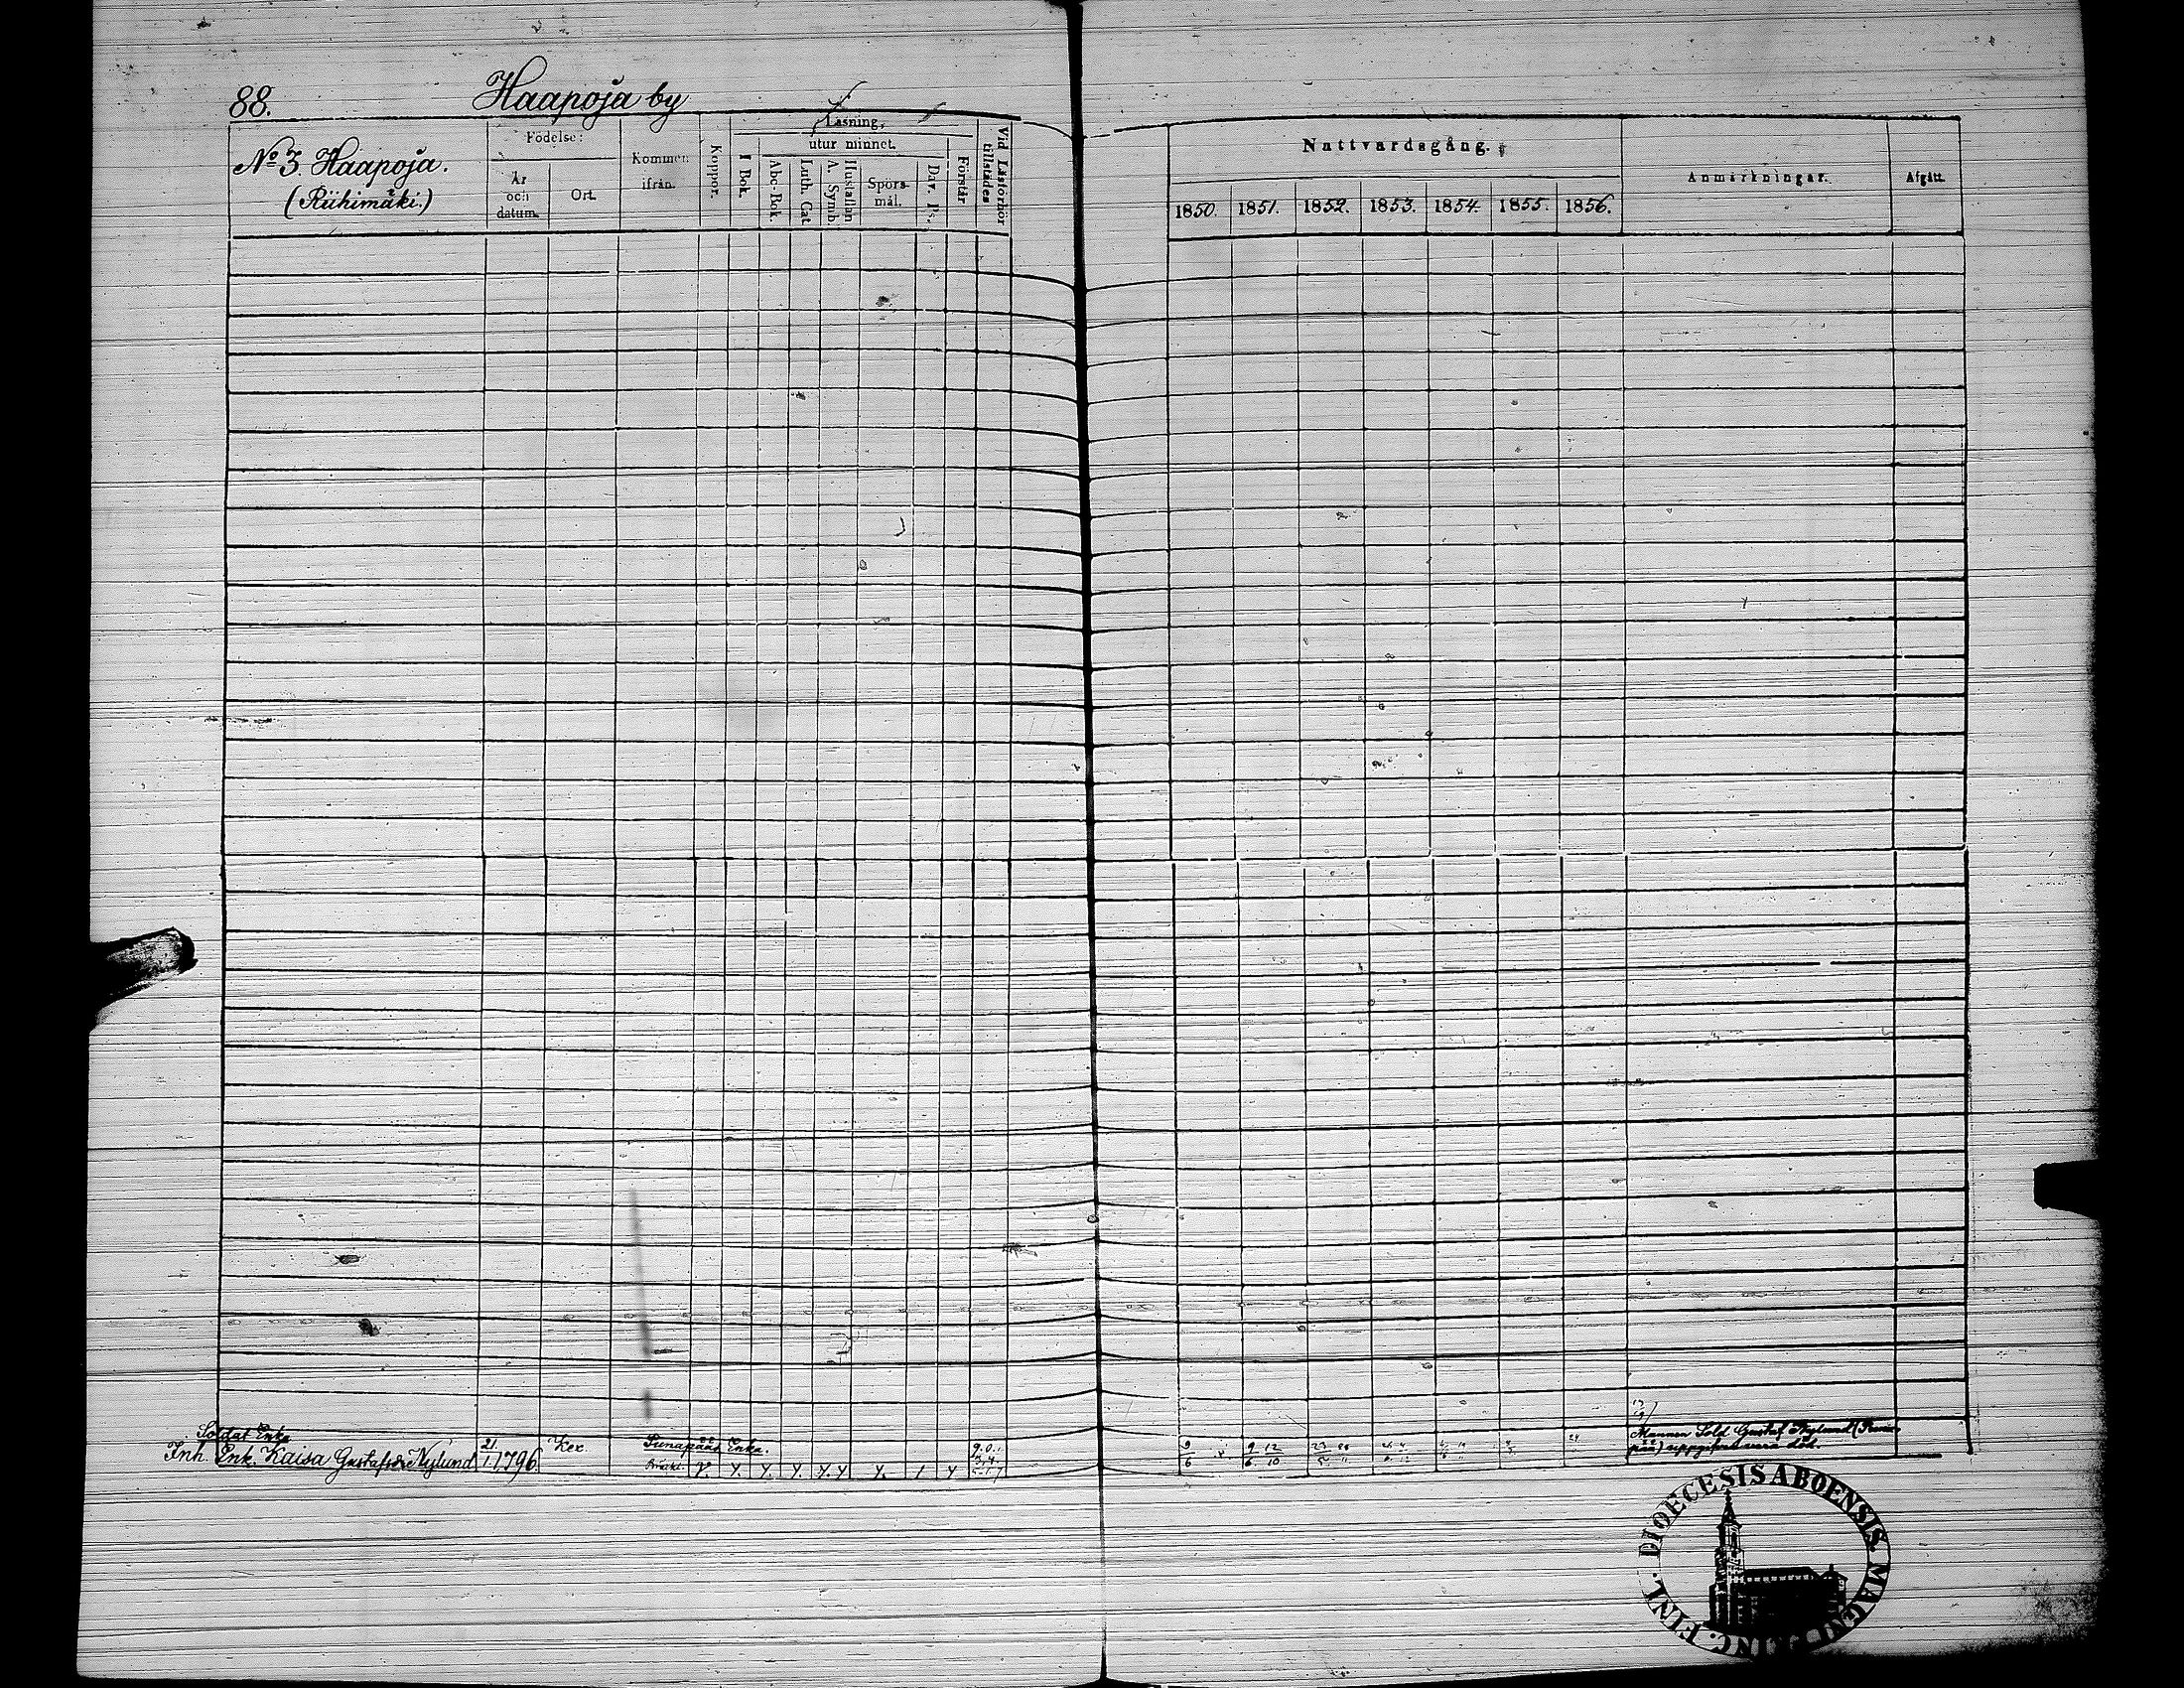 88. Haapoja by
No 3. Haapoja.
(Riihimäki.)
Födelse:
År och datum.
Ort.
Kommen ifrån.
Koppor.
Läsning,
utur minnet.
I Bok.
Abc-Bok.
Luth. Cat.
Hustaflan A. Symb.
Spörsmål.
Dav. Ps.
Förstår
Vid Läsförhör tillstädes
Nattvardsgång.
1850. 1851. 1852. 1853. 1854. 1855. 1856.
Anmärkningar.
Afgått.
Soldat Enka
Inh. Enk. Kaisa Gustafsdr Nylund 21/1 1796.
Enka.
9/6 9/6 12/10
Mannen Sold Gustaf Nylund
uppgifvet vara död.
DIOECESIS ABOENSIS. MAGNI PRINC. FINL.